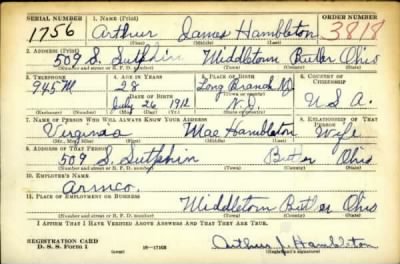 SERIAL NUMBER 1. NAME (Print) ORDER NUMBER
1756 Arthur James Hambleton 3818
(First) (Middle) (Last)
2. ADDRESS (Print)
509 S. Sutphin Middletown Butler Ohio
(Number and street or R. F. D. number) (Town) (County) (State)
3. TELEPHONE 4. AGE IN YEARS 5. PLACE OF BIRTH 6. COUNTRY OF CITIZENSHIP
945M 28 Long Branch
DATE OF BIRTH (Town or county)
July 26 1912 N.J. U.S.A.
(Mo.) (Day) (Yr.) (State or country)
7. NAME OF PERSON WHO WILL ALWAYS KNOW YOUR ADDRESS 8. RELATIONSHIP OF THAT PERSON
Virginia Mae Hambleton Wife
(Mr., Mrs., Miss) (First) (Middle) (Last)
9. ADDRESS OF THAT PERSON
509 S. Sutphin Butler Ohio
(Number and street or R. F. D. number) (Town) (County) (State)
10. EMPLOYER'S NAME
Armco.
11. PLACE OF EMPLOYMENT OR BUSINESS
Middletown Butler Ohio
(Number and street or R. F. D. number) (Town) (County) (State)
I AFFIRM THAT I HAVE VERIFIED ABOVE ANSWERS AND THAT THEY ARE TRUE.
REGISTRATION CARD
D. S. S. Form 1 (over) 16—17105
Arthur J. Hambleton
(Registrant's signature)